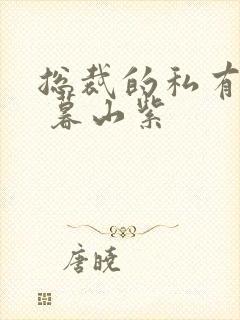 总裁的私有
暮山紫
唐晓